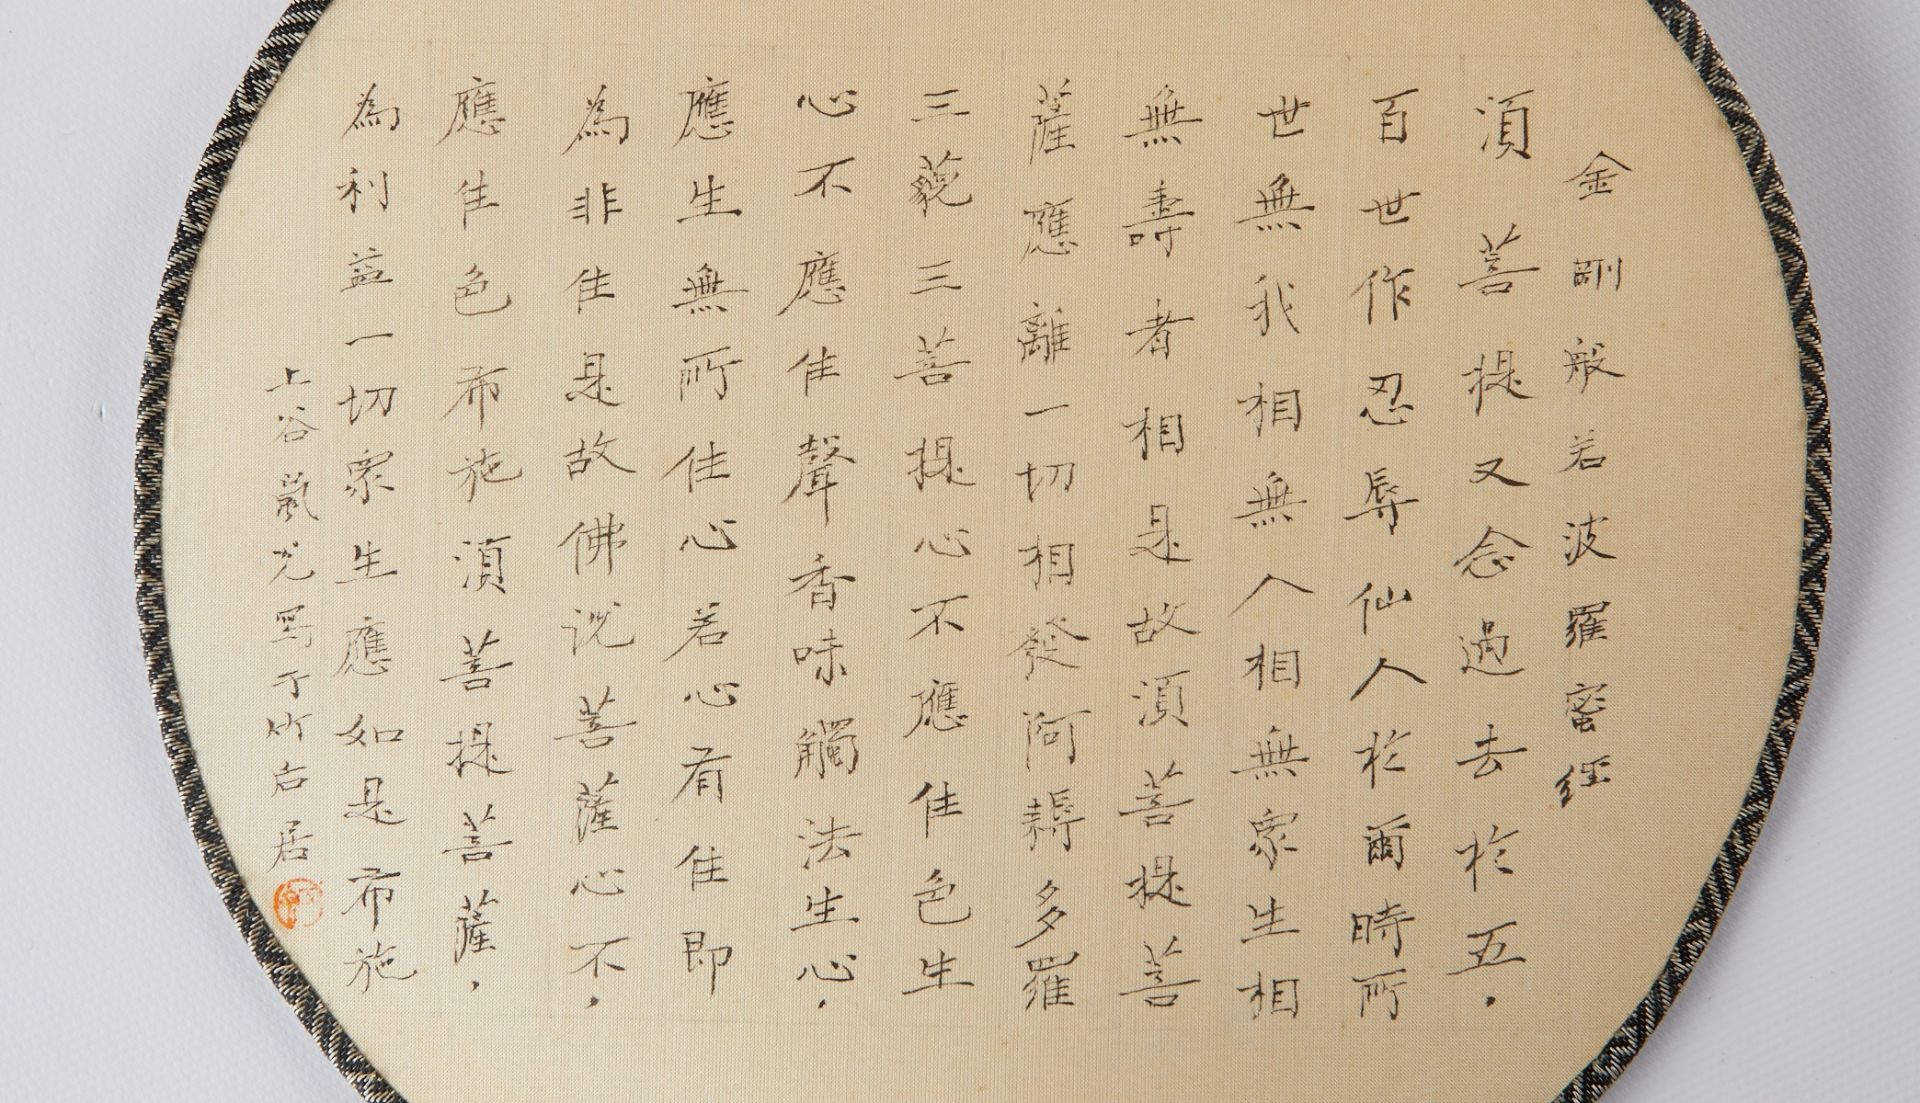 金剛般若波羅蜜經
須菩提又念過去於五，
百世作忍辱仙人於爾時所
世無我相無人相無眾生相
無壽者相是故須菩提菩
薩應離一切相發阿耨多羅
三藐三菩提心不應住色生
心不應住聲香味觸法生心，
應生無所住心若心有住即
為非住是故佛說菩薩心不，
應住色布施須菩提菩薩，
為利益一切眾生應如是布施
上谷光寫于竹石居